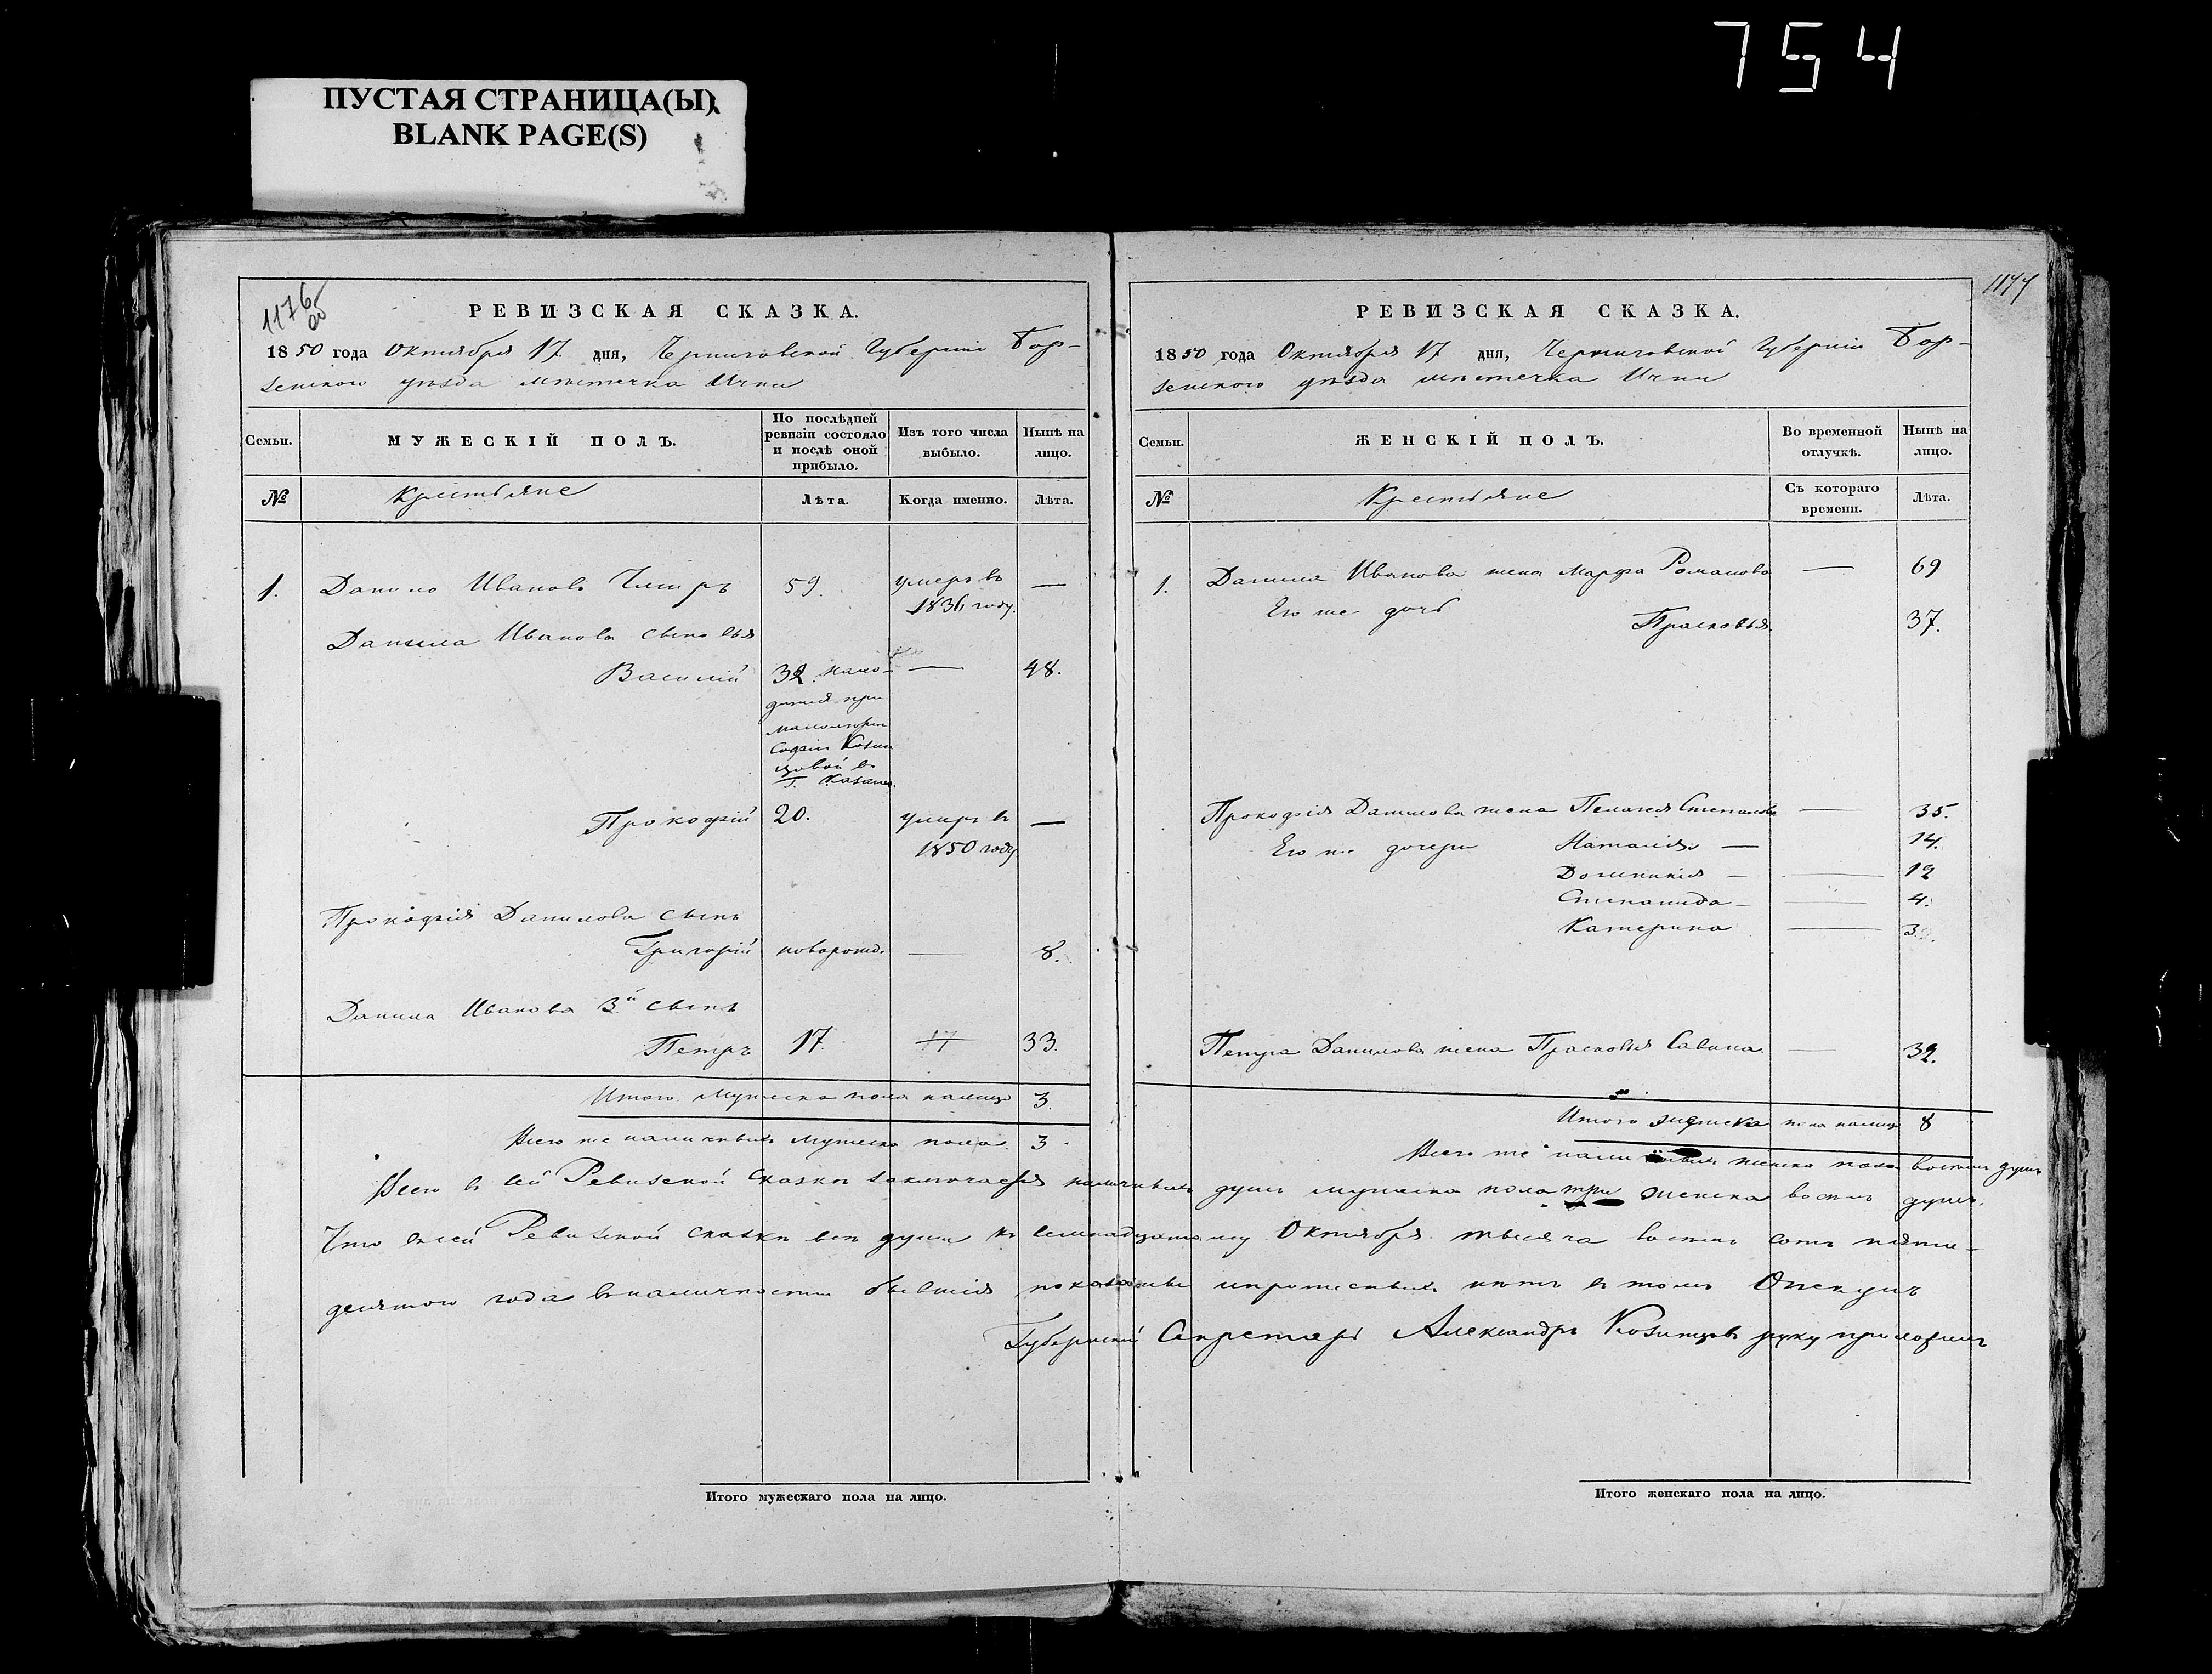 754
ПУСТАЯ СТРАНИЦА(Ы)
BLANK PAGE(S)
1176 об
РЕВИЗСКАЯ СКАЗКА.
1850 года Октября 17 дня, Черниговской Губерніи Бор-
зенского уѣзда мѣстечка Ични
Семьи.
МУЖЕСКІЙ ПОЛЪ.
По послѣдней ревизіи состояло и послѣ оной прибыло.
Изъ того числа выбыло.
Нынѣ на лицо.
№
Крестьяне
Лѣта.
Когда именно.
Лѣта.
1. Данило Ивановъ 59. умеръ въ —
1836 году.
Данила Иванова сыновья
Василій 32. нахо- — 48.
дится при
Софіи
въ
г. Казани.
Прокофій 20. умеръ въ —
1850 году
Прокофія Данилова сынъ
Григорій новорожд. — 8.
Данила Иванова 3й сынъ
Петръ 17. 33.
Итого мужеска пола налицо 3.
Всего же наличныхъ мужеска пола 3.
Итого мужескаго пола на лицо.
1177
РЕВИЗСКАЯ СКАЗКА.
1850 года Октября 17 дня, Черниговской Губерніи Бор-
зенского уѣзда мѣстечка Ични
Семьи.
ЖЕНСКІЙ ПОЛЪ.
Во временной отлучкѣ.
Нынѣ на лицо.
№
Крестьяне
Съ котораго времени.
Лѣта.
1. Данила Иванова жена Марфа Романова — 69
Его же дочь Прасковья. 37.
Прокофія Данилова жена Пелагея Степанова — 35.
Его же дочери Наталія — 14.
Домникія — — 12
Степанида — — 4.
Катерина — 3.
Петра Данилова жена Прасковья Савина — 32.
Итого женска пола налицо 8
Всего же наличныхъ женска пола восемь душъ
Всего въ сей Ревизской сказкѣ заключается наличныхъ душъ мужеска пола три женска восемь душъ.
Что въ сей Ревизской сказкѣ всѣ души къ семнадцатому Октября тысяча восемь сотъ пяти-
десятого года въ наличности бывшія показаны и прописныхъ нѣтъ въ томъ Опекунъ
Губернскій Секретарь Александръ Козинцовъ руку приложилъ
Итого женскаго пола на лицо.